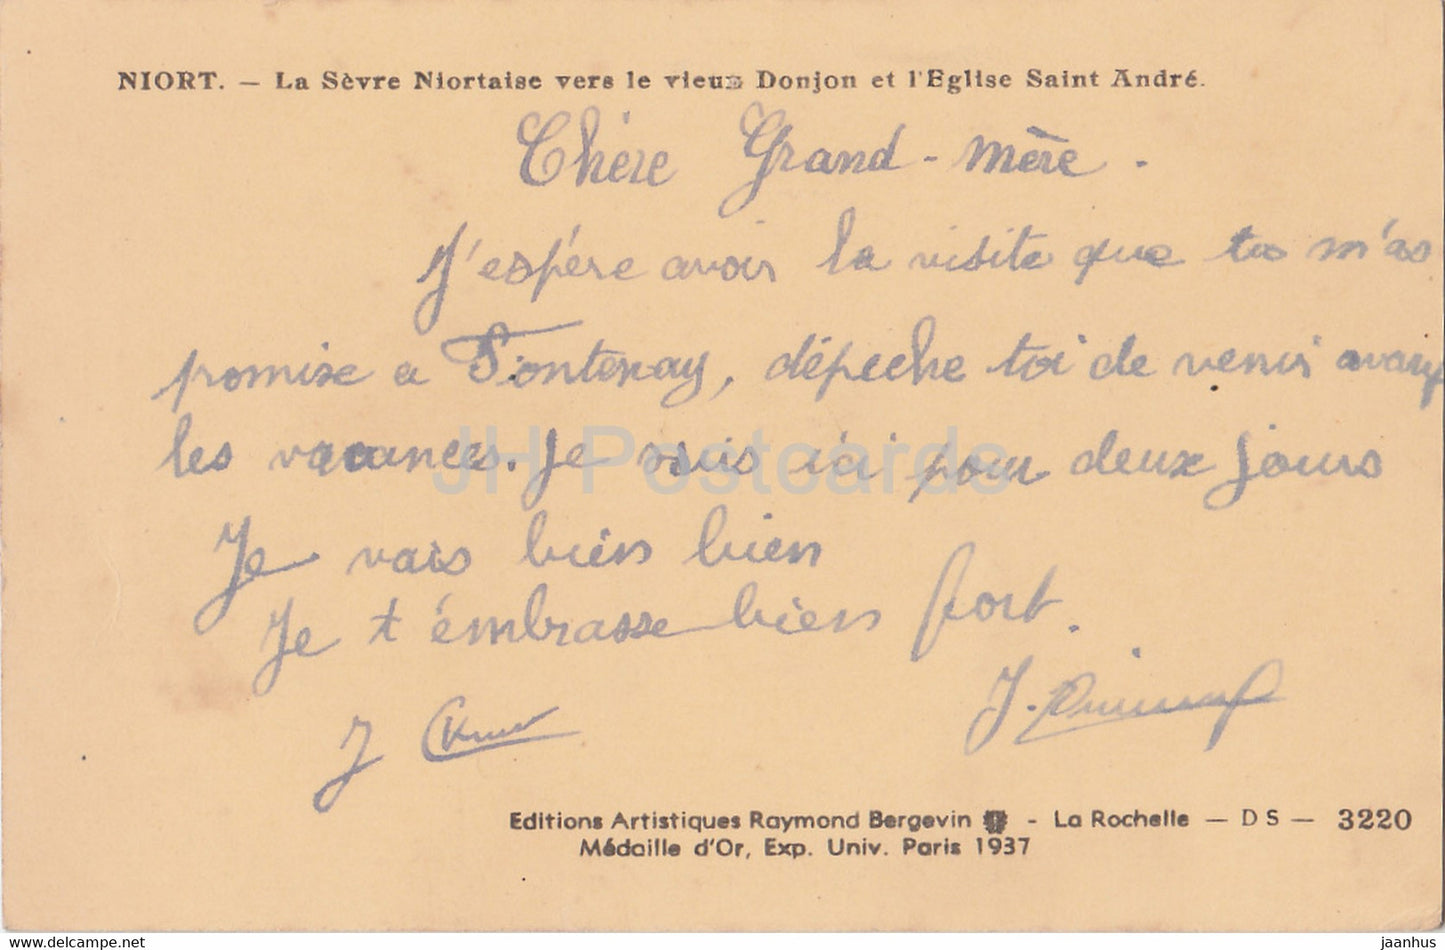 NIORT. — La Sèvre Niortaise vers le vieux Donjon et l'Eglise Saint André.
Chère Grand-mère.
J'espère avoir la visite que tu m'as
promise a Fontenay, dépeche toi de venir avant
les vacances. Je suis ici pour deux jours
Je vais bien bien
Je t'émbrasse bien fort.
J.
J
JH Postcards
Editions Artistiques Raymond Bergevin - La Rochelle — D S — 3220
Médaille d'Or, Exp. Univ. Paris 1937
https://www.hippostcard.com/store/jaanhus